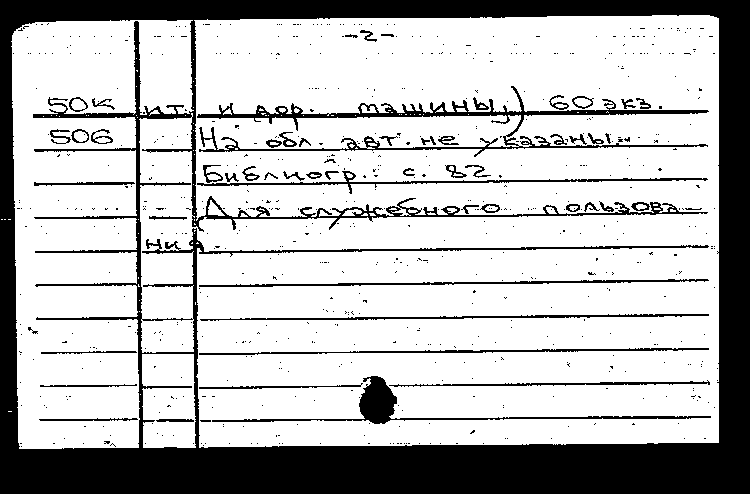 -2-
50к ит. и дор. машины) 60 экз.
506 На обл. авт. не указаны.
Библиогр.: с. 82.
Для служебного пользова-
ния.